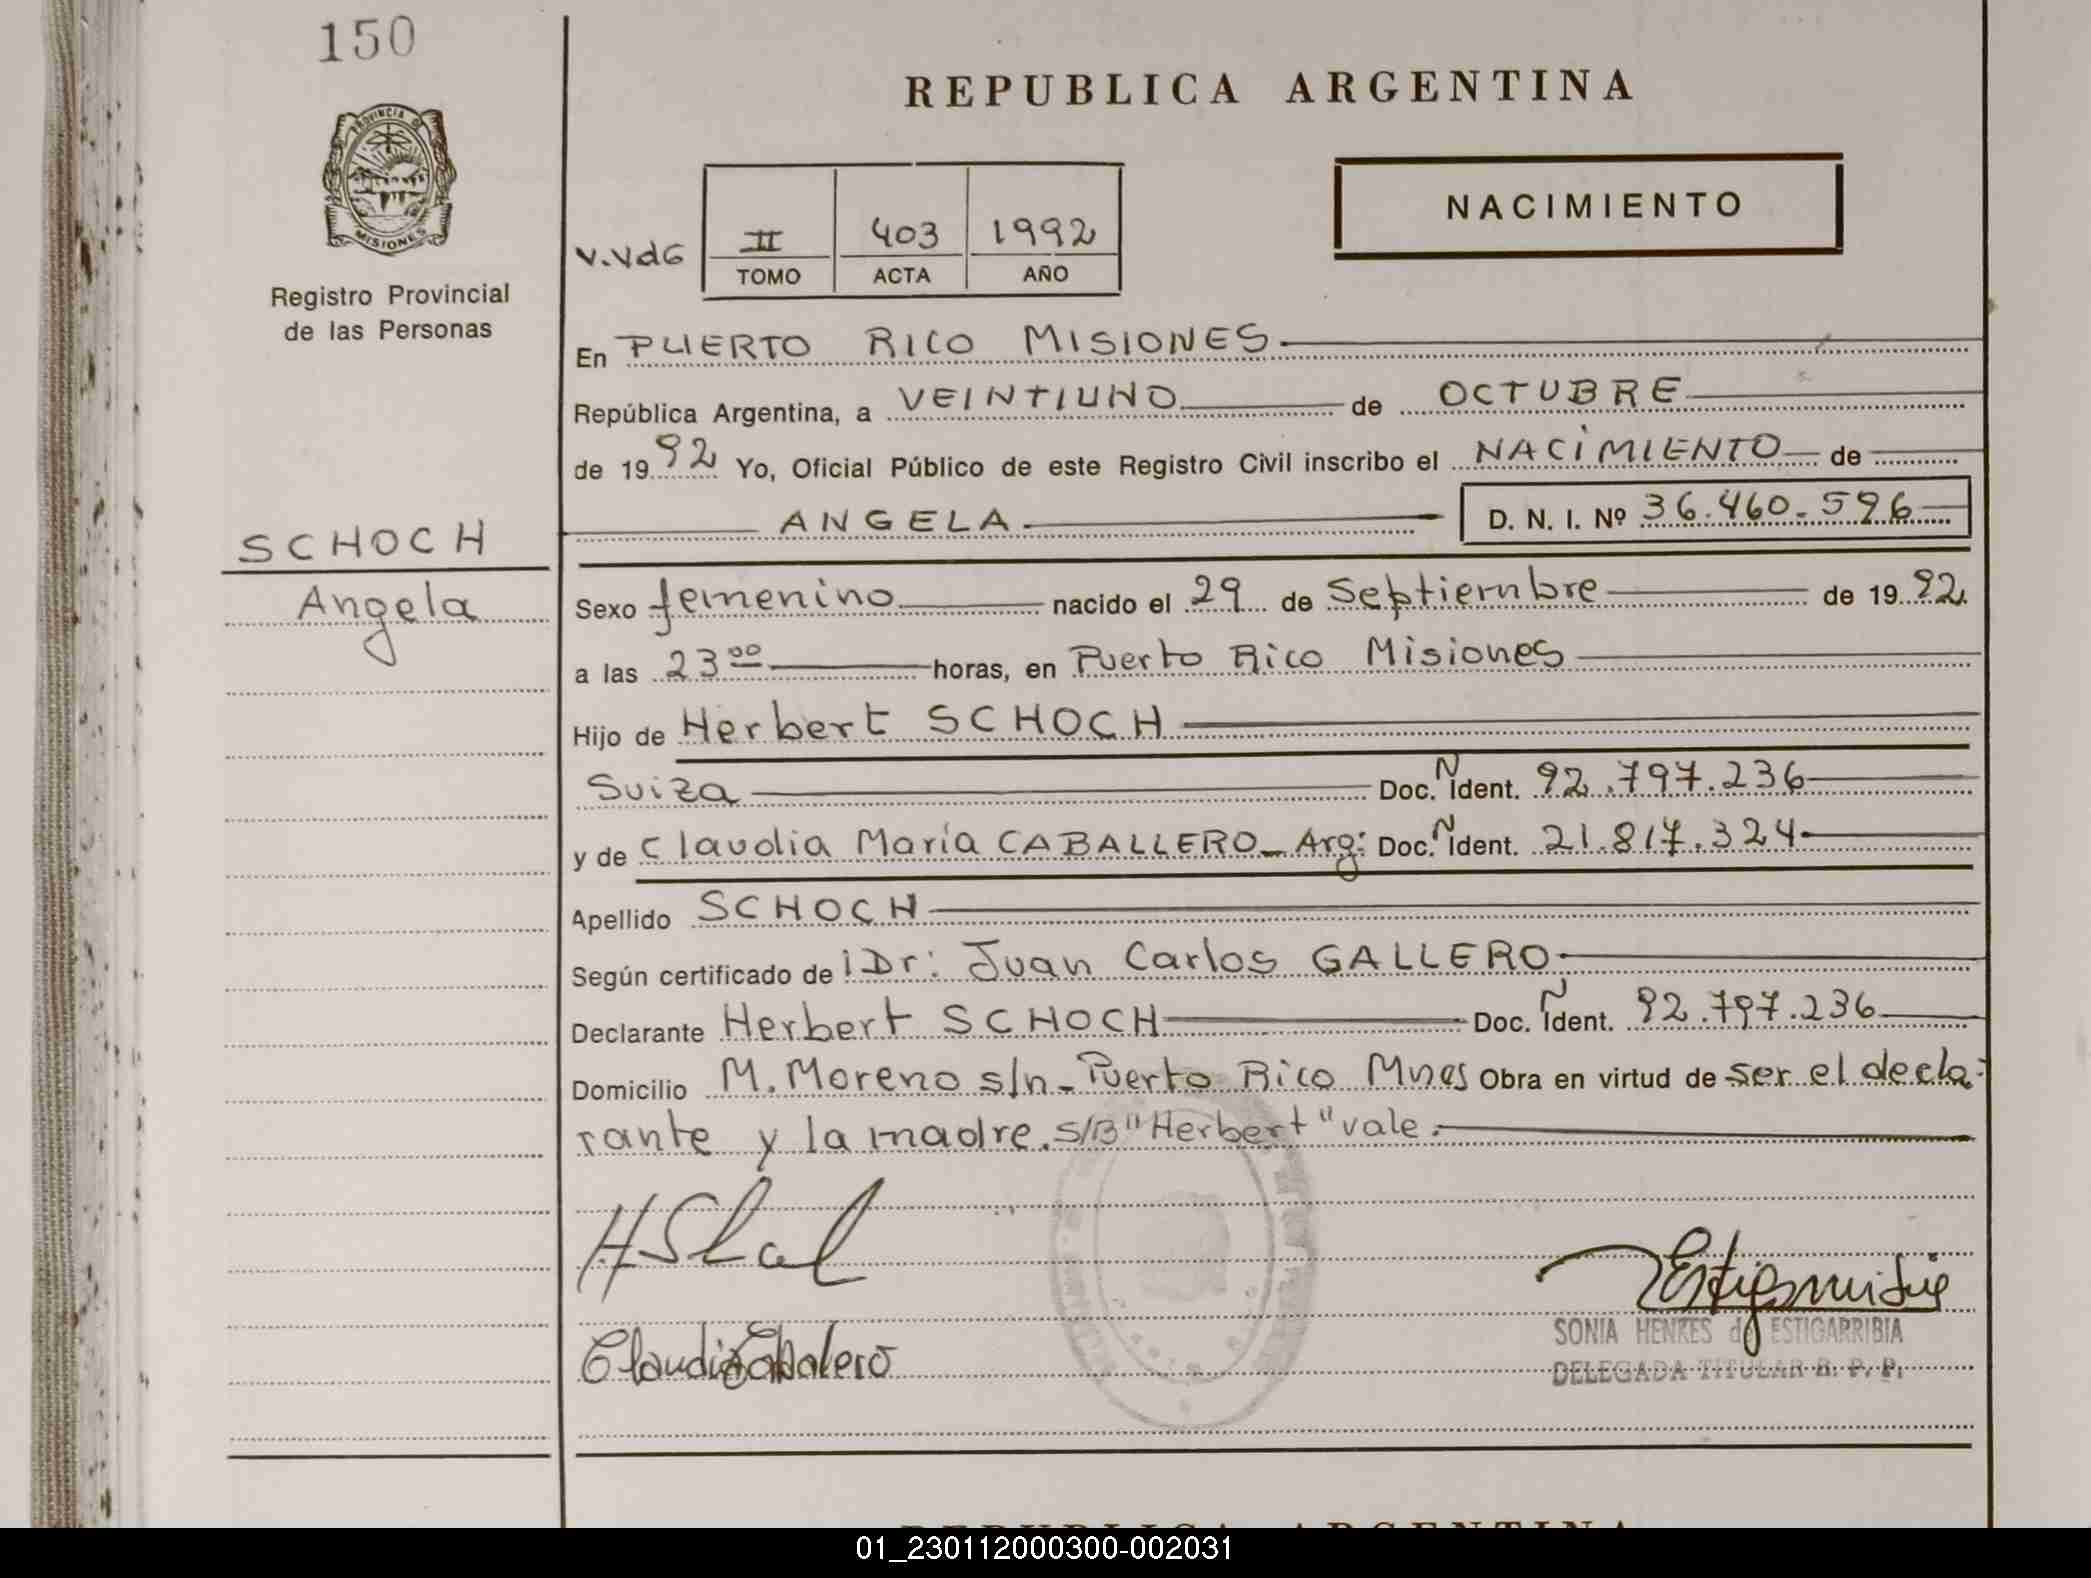 150
REPUBLICA ARGENTINA
PROVINCIA DE
MISIONES
NACIMIENTO
V.VdG
II 403 1992
TOMO ACTA AÑO
Registro Provincial
de las Personas
En PUERTO RICO MISIONES
República Argentina, a VEINTIUNO de OCTUBRE
de 19 92 Yo, Oficial Público de este Registro Civil inscribo el NACIMIENTO de
ANGELA D. N. I. Nº 36.460.596
SCHOCH
Angela
Sexo femenino nacido el 29 de Septiembre de 19 92.
a las 23 00 horas, en Puerto Rico Misiones
Hijo de Herbert SCHOCH
Suiza Doc. N Ident. 92.797.236
y de Claudia María CABALLERO - Arg: Doc. N Ident. 21.817.324
Apellido SCHOCH
Según certificado de Dr: Juan Carlos GALLERO
Declarante Herbert SCHOCH Doc. N Ident. 92.797.236
Domicilio M. Moreno s/n - Puerto Rico Mnes Obra en virtud de ser el decla-
rante y la madre. S/B "Herbert" vale.
Claudia Caballero
SONIA HENKES de ESTIGARRIBIA
DELEGADA TITULAR R. P. P.
REPUBLICA ARGENTINA
01_230112000300-002031